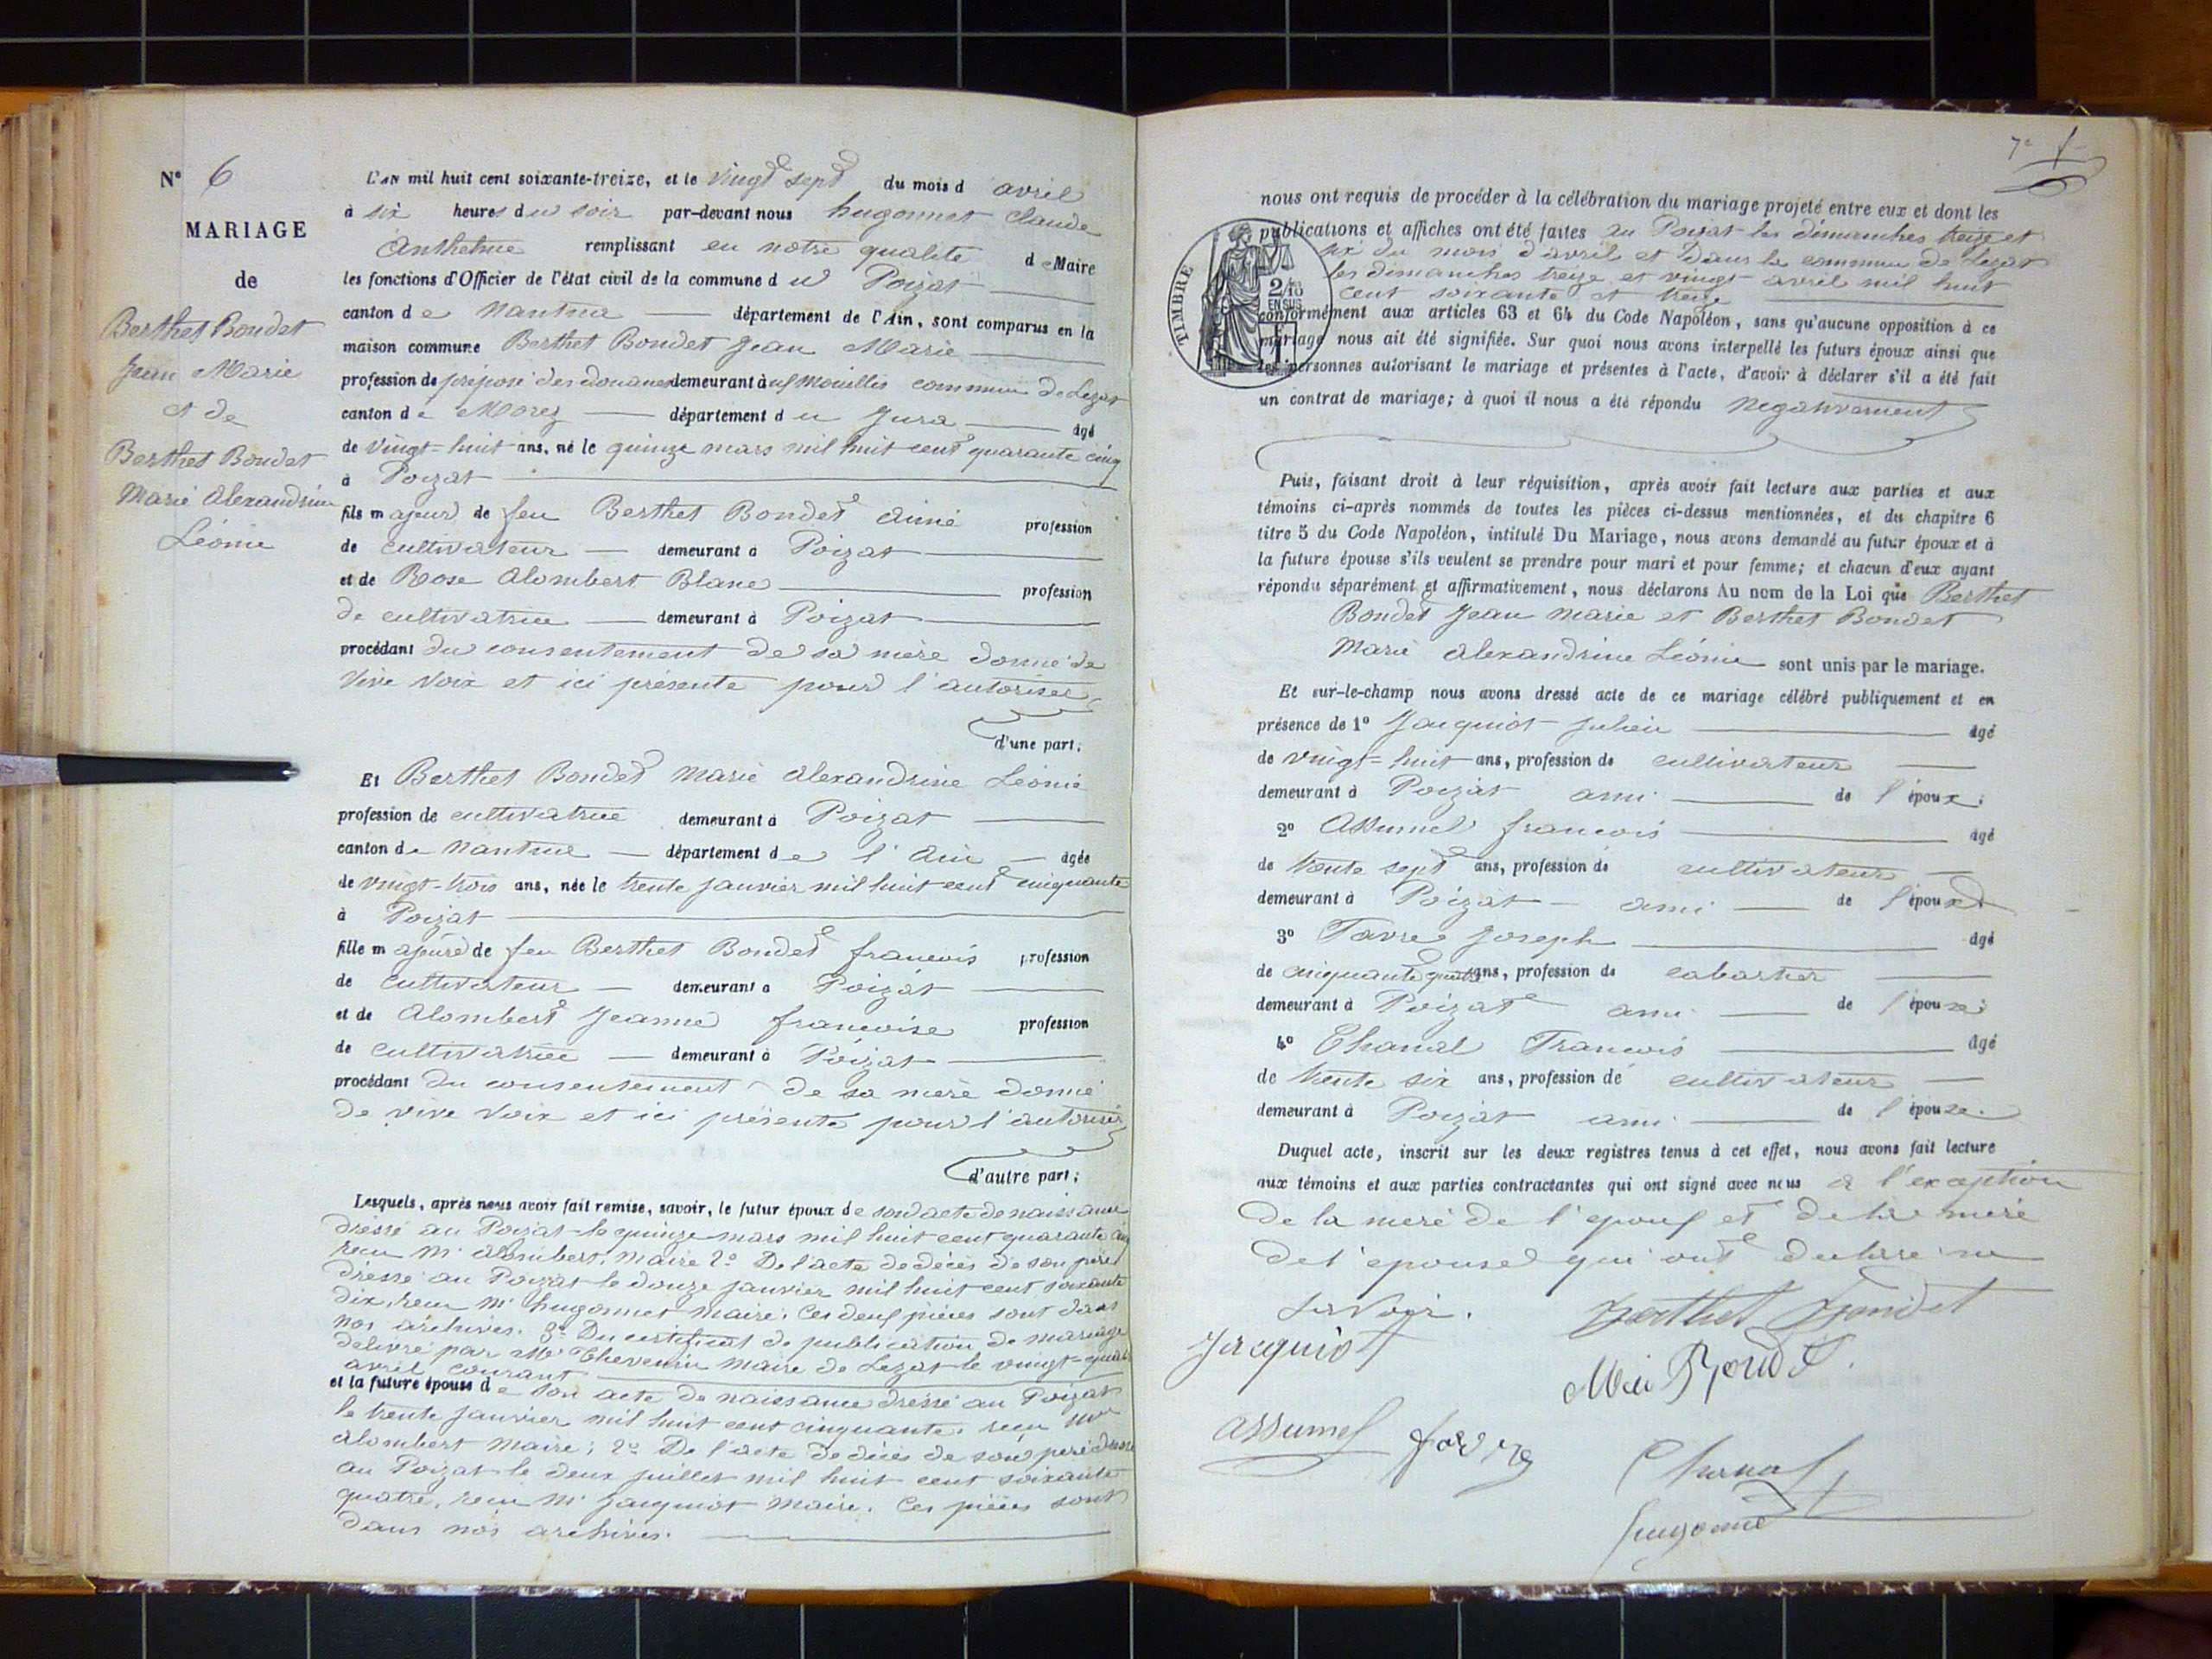 N° 6
MARIAGE
de
Berthet Bondet
Jean Marie
et de
Berthet Bondet
Marie Alexandrine
Léonie
L'an mil huit cent soixante-treize, et le vingt sept du mois d avril
à six heures du soir par-devant nous hugonnet Claude
Anthelme remplissant en notre qualité d e Maire
les fonctions d'Officier de l'état civil de la commune d u Poizat
canton d e Nantua département de l'Ain, sont comparus en la
maison commune Berthet Bondet Jean Marie
profession de préposé des douanes demeurant à Mouilles commune de Lezat
canton d e Morez département d u Jura âgé
de vingt-huit ans, né le quinze mars mil huit cent quarante cinq
à Poizat
fils majeur de feu Berthet Bondet Aimé profession
de cultivateur demeurant à Poizat
et de Rose Alombert Blanc profession
de cultivatrice demeurant à Poizat
procédant du consentement de sa mère donné de
vive voix et ici présente pour l'autoriser
d'une part;
Et Berthet Bondet Marie Alexandrine Léonie
profession de cultivatrice demeurant à Poizat
canton de Nantua département d e l'Ain âgée
de vingt-trois ans, née le trente janvier mil huit cent cinquante
à Poizat
fille majeure de feu Berthet Bondet francois profession
de cultivateur demeurant à Poizat
et de Alombert Jeanne francoise profession
de cultivatrice demeurant à Poizat
procédant du consentement de sa mère donné
de vive voix et ici présente pour l'autoriser
d'autre part;
Lesquels, après nous avoir fait remise, savoir, le futur époux d e son acte de naissance
dressé au Poizat le quinze mars mil huit cent quarante cinq
recu Mr Alombert, Maire 2° De l'acte de décès de son père
dressé au Poizat le douze janvier mil huit cent soixante
dix, recu Mr hugonnet Maire. Ces deux pièces sont dans
nos archives. 3° Du certificat de publication de mariage
délivré par Mr Thevenin Maire de Lezat le vingt-quatre
avril courant
et la future épouse d e son acte de naissance dressé au Poizat
le trente janvier mil huit cent cinquante. recu Mr
Alombert Maire; 2° De l'acte de décès de son père dressé
au Poizat le deux juillet mil huit cent soixante
quatre, recu Mr Jacquiot Maire. Ces pièces sont
dans nos archives.
7e
nous ont requis de procéder à la célébration du mariage projeté entre eux et dont les
publications et affiches ont été faites au Poizat les dimanches treize et
six du mois d'avril et Dans la commune de Lezat
les dimanches treize et vingt avril mil huit
cent soixante et treize
TIMBRE
2/10
EN SUS
conformément aux articles 63 et 64 du Code Napoléon, sans qu'aucune opposition à ce
mariage nous ait été signifiée. Sur quoi nous avons interpellé les futurs époux ainsi que
les personnes autorisant le mariage et présentes à l'acte, d'avoir à déclarer s'il a été fait
un contrat de mariage; à quoi il nous a été répondu Negativement
Puis, faisant droit à leur réquisition, après avoir fait lecture aux parties et aux
témoins ci-après nommés de toutes les pièces ci-dessus mentionnées, et du chapitre 6
titre 5 du Code Napoléon, intitulé Du Mariage, nous avons demandé au futur époux et à
la future épouse s'ils veulent se prendre pour mari et pour femme; et chacun d'eux ayant
répondu séparément et affirmativement, nous déclarons Au nom de la Loi que Berthet
Bondet Jean Marie et Berthet Bondet
Marie Alexandrine Léonie sont unis par le mariage.
Et sur-le-champ nous avons dressé acte de ce mariage célébré publiquement et en
présence de 1° Jacquiot Julien âgé
de vingt-huit ans, profession de cultivateur
demeurant à Poizat ami de l'époux;
2° Assumel francois âgé
de trente sept ans, profession de cultivateur
demeurant à Poizat ami de l'époux
3° Favre Joseph âgé
de cinquante quatre ans, profession de cabartier
demeurant à Poizat ami de l'épouse;
4° Chanal Francois âgé
de trente six ans, profession de cultivateur
demeurant à Poizat ami de l'épouse.
Duquel acte, inscrit sur les deux registres tenus à cet effet, nous avons fait lecture
aux témoins et aux parties contractantes qui ont signé avec nous à l'exception
De la mère de l'epoux et de la mère
de l'epouse qui ont declaré ne
savoir.
Berthet Bondet
Jacquiot
Bondet
Assumel
favre
Chanal
hugonnet